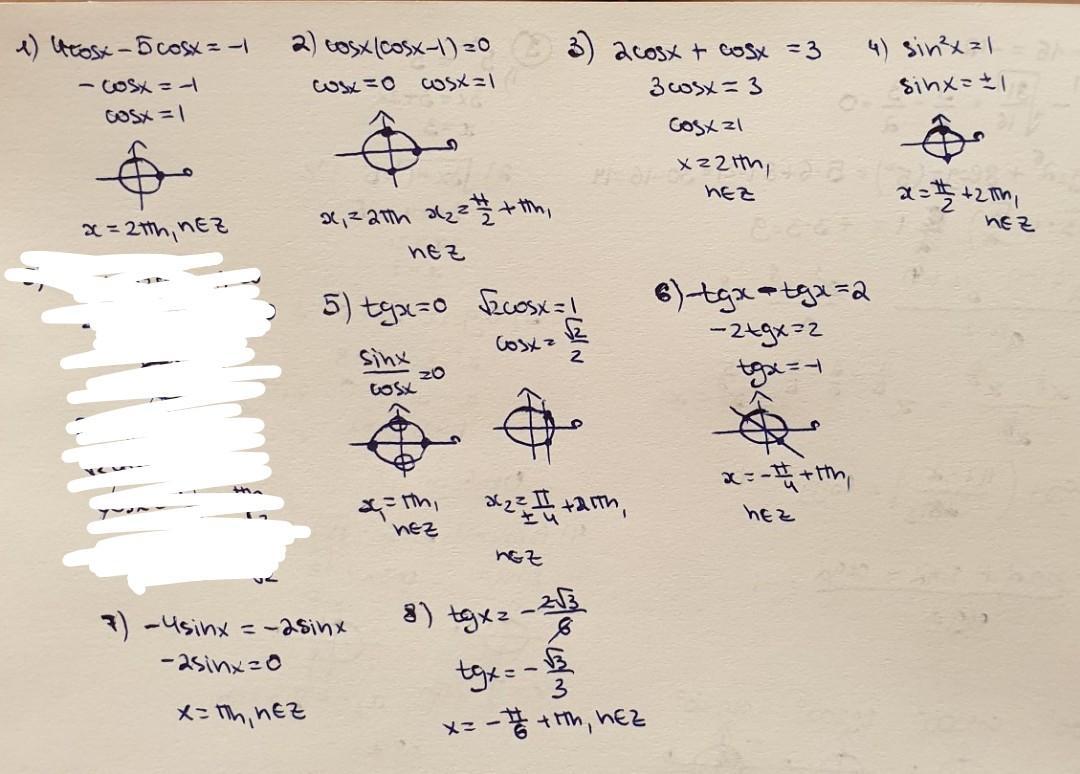 1) 4cosx - 5cosx = -1
- cosx = -1
cosx = 1
x = 2πn, n∈Z
2) cosx(cosx-1)=0
cosx=0 cosx=1
x₁=2πn x₂=π/2+πn,
n∈Z
3) 2cosx + cosx = 3
3cosx = 3
cosx=1
x=2πn,
n∈Z
4) sin²x=1
sinx=±1
x=π/2+2πn,
n∈Z
5) tgx=0 √2cosx=1
sinx/cosx=0 cosx=√2/2
x₁=πn, x₂=±π/4+2πn,
n∈Z n∈Z
6) -tgx-tgx=2
-2tgx=2
tgx=-1
x=-π/4+πn,
n∈Z
7) -4sinx = -2sinx
-2sinx=0
x=πn, n∈Z
8) tgx= -2√3/6
tgx= -√3/3
x= -π/6+πn, n∈Z